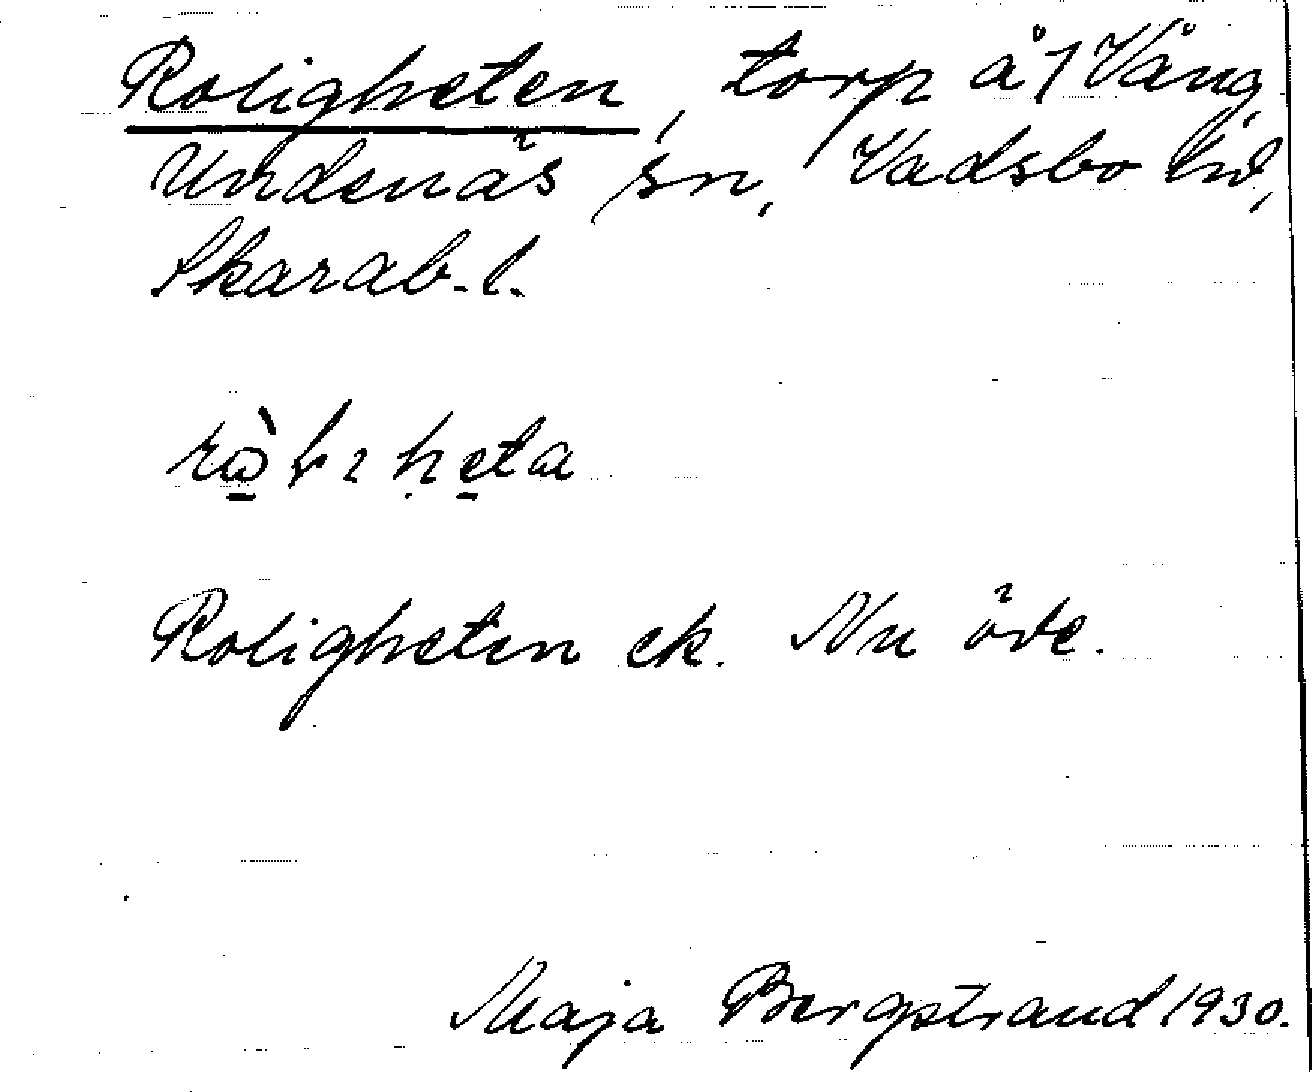 Roligheten, torp å 1 Vång,
Undenäs sn, Vadsbo hd,
Skarab. l.
Roligheten ek. Nu öde.
Maja Bergstrand 1930.